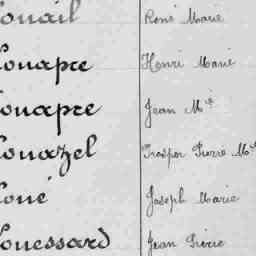 ouail René Marie
ouapre Henri Marie
ouapre Jean M<sup>ie</sup>
ouazel Prosper Pierre M<sup>ie</sup>
oué Joseph Marie
ouessard Jean Pierre